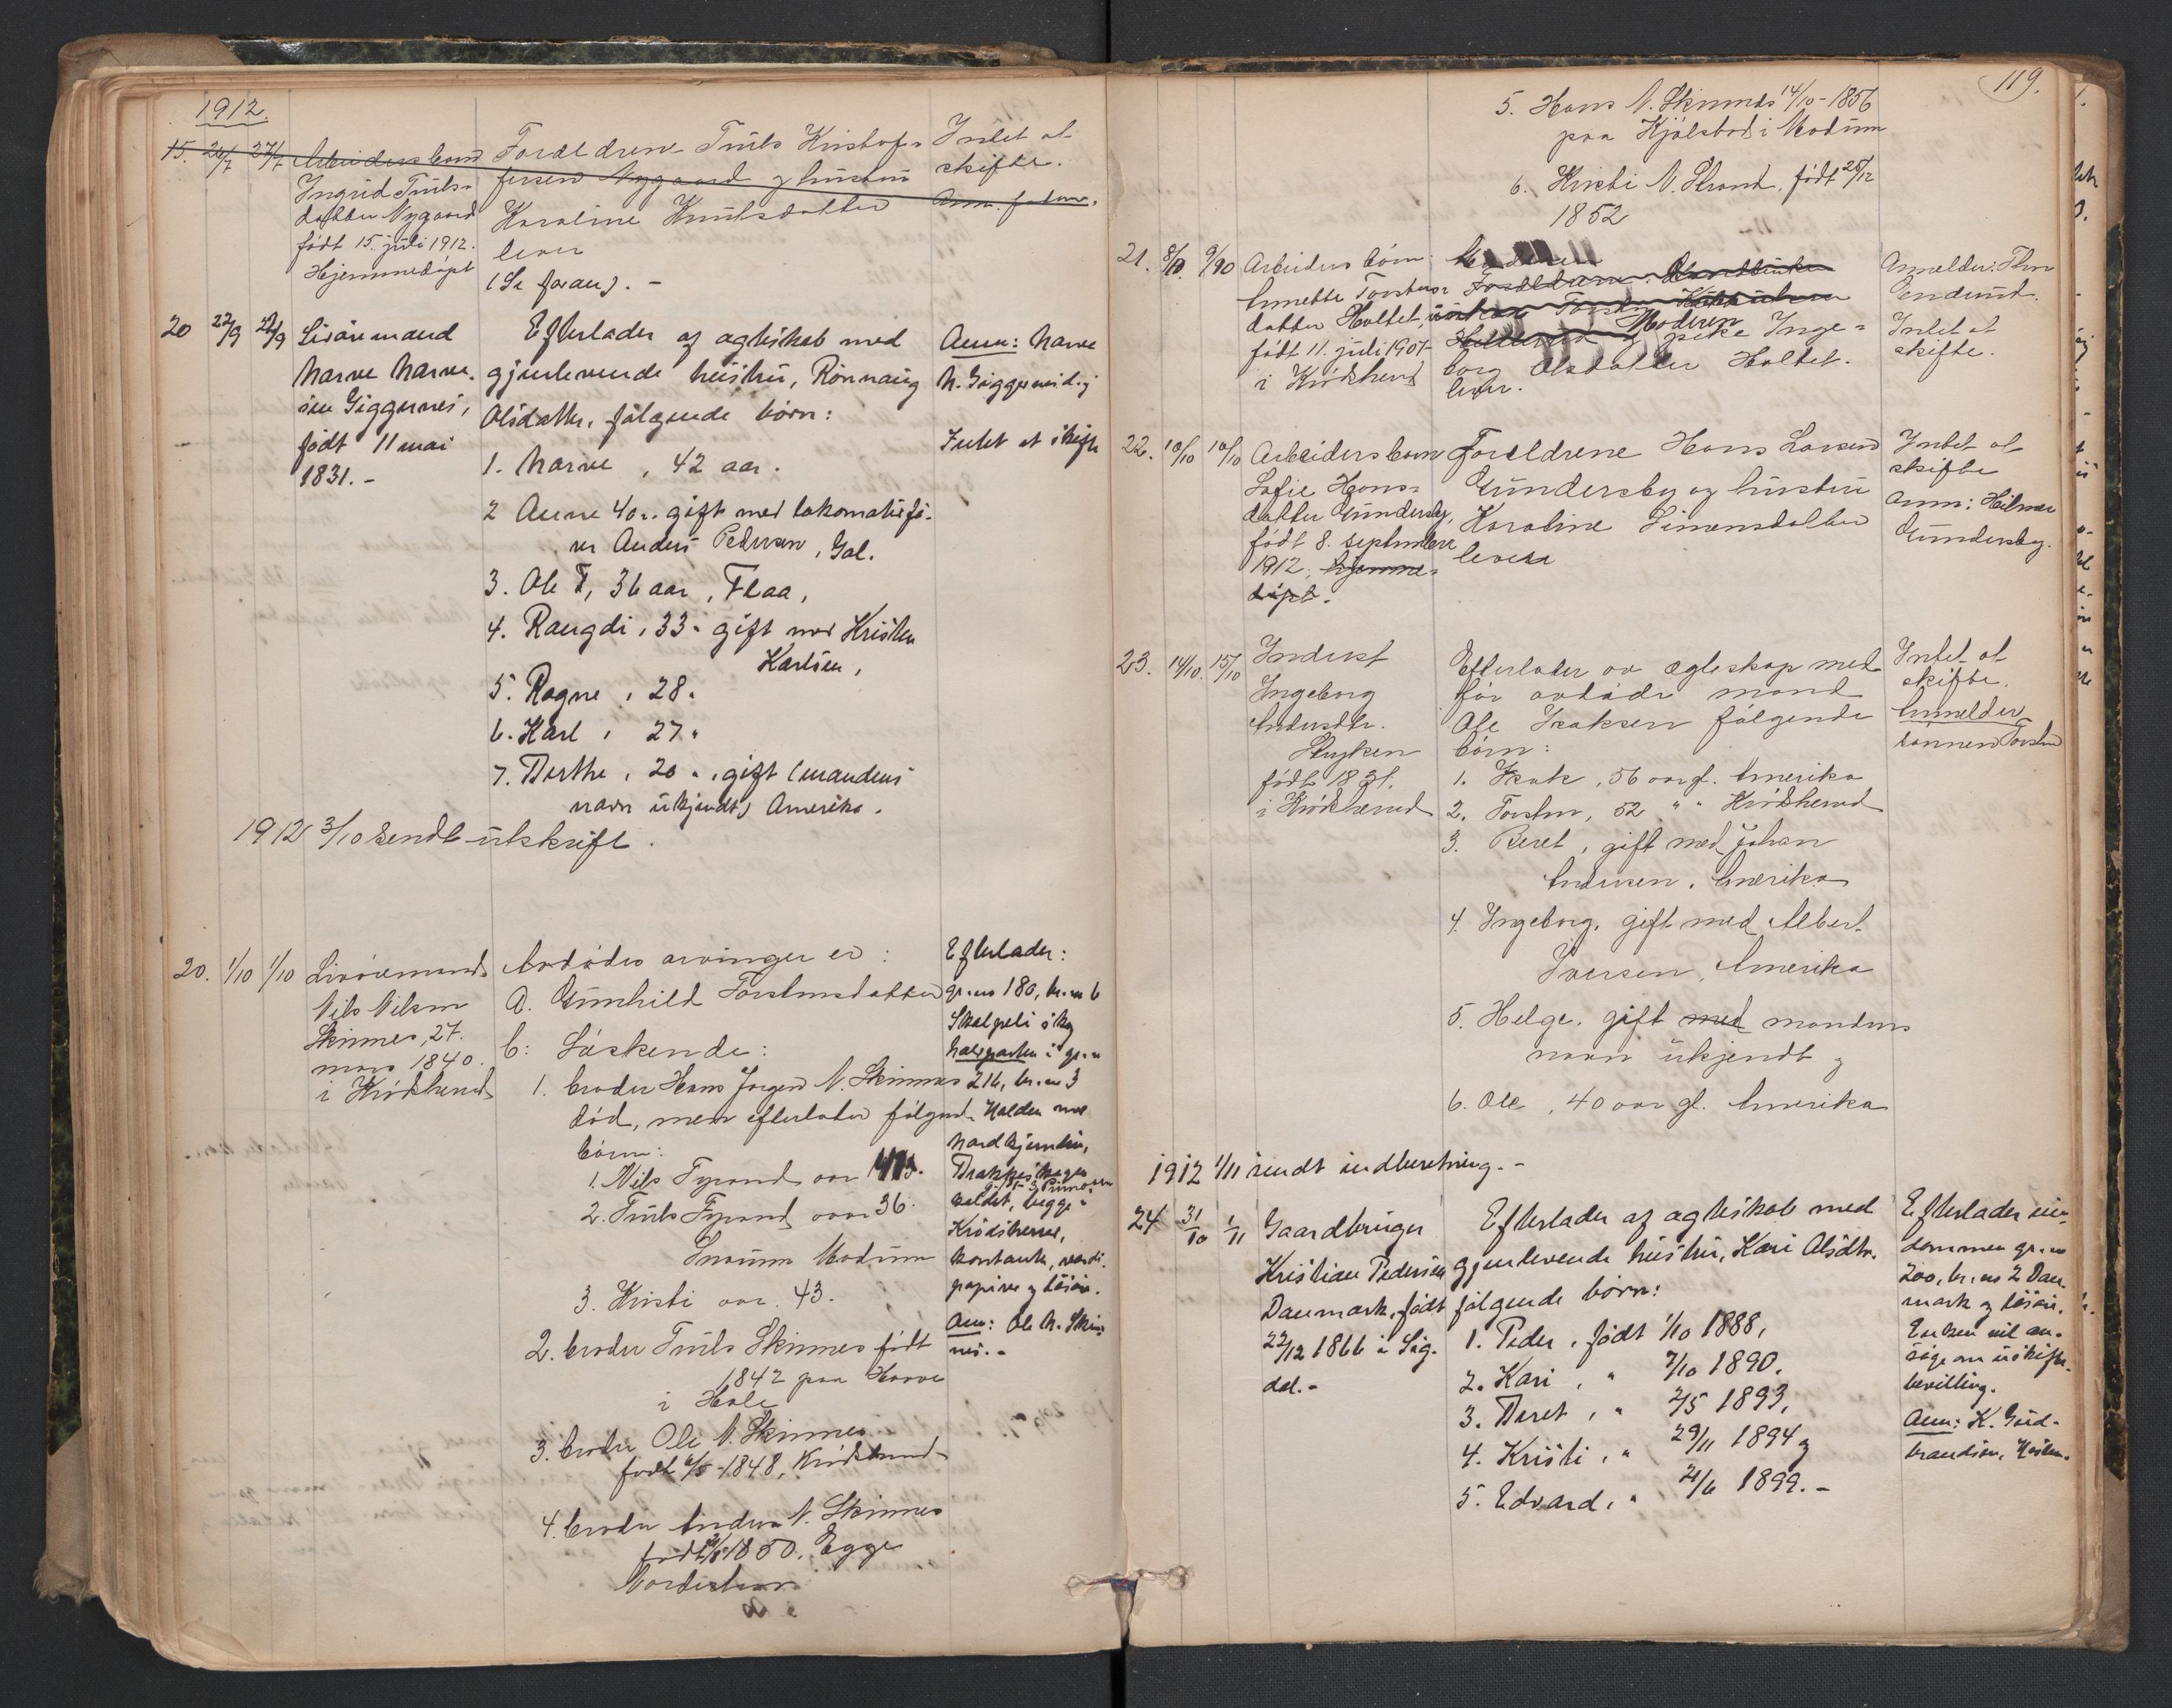 1912.
15. 26/7 27/7 Arbeidersbarn
Ingrid Truls-
datter Nygaard
født 15. juli 1912.
Hjemmedøpt
Foreldrene Truls Kristof-
fersen Nygaard og hustru
Karoline Knutsdatter
lever
(Se foran). -
Intet at
skifte.
Anm. faderen.
20 22/9 22/9 Livøremand
Narve Narve-
sen Giggernes,
født 11 mai
1831. -
Efterlader af ægteskab med
gjenlevende hustru, Rønnaug
Olsdatter, følgende børn:
1. Narve, 42 aar.
2 Anne 40 ". gift med lokomotivfø-
rer Anders Pedersen, Gol.
3. Ole F, 36 aar, Flaa,
4. Rangdi, 33 " gift med Kristen
Karlsen,
5. Ragne, 28 "
6. Karl, 27 "
7. Berthe, 20 ", gift (mandens
navn ukjendt) Amerika.
Anm: Narve
N. Giggernes
Intet at skifte
1912 3/10 sendt utskrift.
20. 1/10 1/10 Livøremand
Nils Nilsen
Skinnes, 27.
mars 1840.
i Krødsherad
Avdødes arvinger er:
a. Gunhild Torstensdatter
b: Søskende:
1. broder Hans Jørgen N. Skinnes
død, men efterlater følgende
børn:
1. Nils Fyrand aar
2. Truls Fyrand aar 36.
Snarum Modum
3. Kristi aar 43.
2. broder Truls Skinnes født
1842 paa
i Hole
3. broder Ole N. Skinnes
født 6/5 - 1848, Krødsherad
4. broder Anders N. Skinnes
født 1850, Egge
Norderhov
Efterlader:
gr.no 180, br.no 6
skog
halvparten i gr.no
216, br.no 3
Halden med
begge i
Krødsherred,
kontanter, verdi-
papirer og løsøre.
Anm: Ole N. Skin-
nes. -
119.
5. Hans N. Skinnes 14/10 - 1856
paa Kjølstad i Modum
6. Kristi N. Strand, født 25/12
1852
21. 8/10 9/10 Arbeiders barn
Annette Torstens-
datter Holtet,
født 11. juli 1907
i Krødsherad
Foreldrene:
Moderen
pike Inge-
borg Olsdatter Holtet.
lever.
Anmelder: Thv
Intet at
skifte.
22. 10/10 10/10 Arbeidersbarn
Sofie Hans-
datter Gundersby,
født 8. september
1912, hjemme-
døpt.
Foreldrene Hans Larsen
Gundersby og hustru
Karoline Simensdatter
lever
Intet at
skifte
Anm: Hilmar
Gundersby.
23. 14/10. 15/10 Inderst
Ingeborg
Andersdtr.
Stryken
født 1831.
i Krødsherad
Efterlater av ægteskap med
før avdøde mand
Ole Isaksen følgende
børn:
1. Isak, 56 aar gl. Amerika
2. Torsten, 52 " " Krødsherad
3. Beret, gift med Johan
Andersen, Amerika
4. Ingeborg, gift med Albert
Iversen, Amerika
5. Helge, gift med mandens
navn ukjendt og
6. Ole, 40 aar gl. Amerika
Intet at
skifte.
Anmelder
sønnen Torsten
1912 1/11 sendt indberetning. -
24 31/10 1/11 Gaardbruger
Kristian Pedersen
Danmark, født
22/12 1866 i Sig-
dal. -
Efterlader af ægteskab med
gjenlevende hustru, Kari Olsdtr.
følgende børn:
1. Peder, født 1/10 1888,
2. Kari, " 7/10 1890.
3. Beret, " 2/5 1893,
4. Kristi, " 29/11 1894 og
5. Edvard, " 21/6 1899. -
Efterlader eien-
dommen gr.no
200, br.no 2 Dan-
mark og løsøre.
Enken vil an-
søge om uskifte-
bevilling.
Anm: K. Gud-
brandsen,